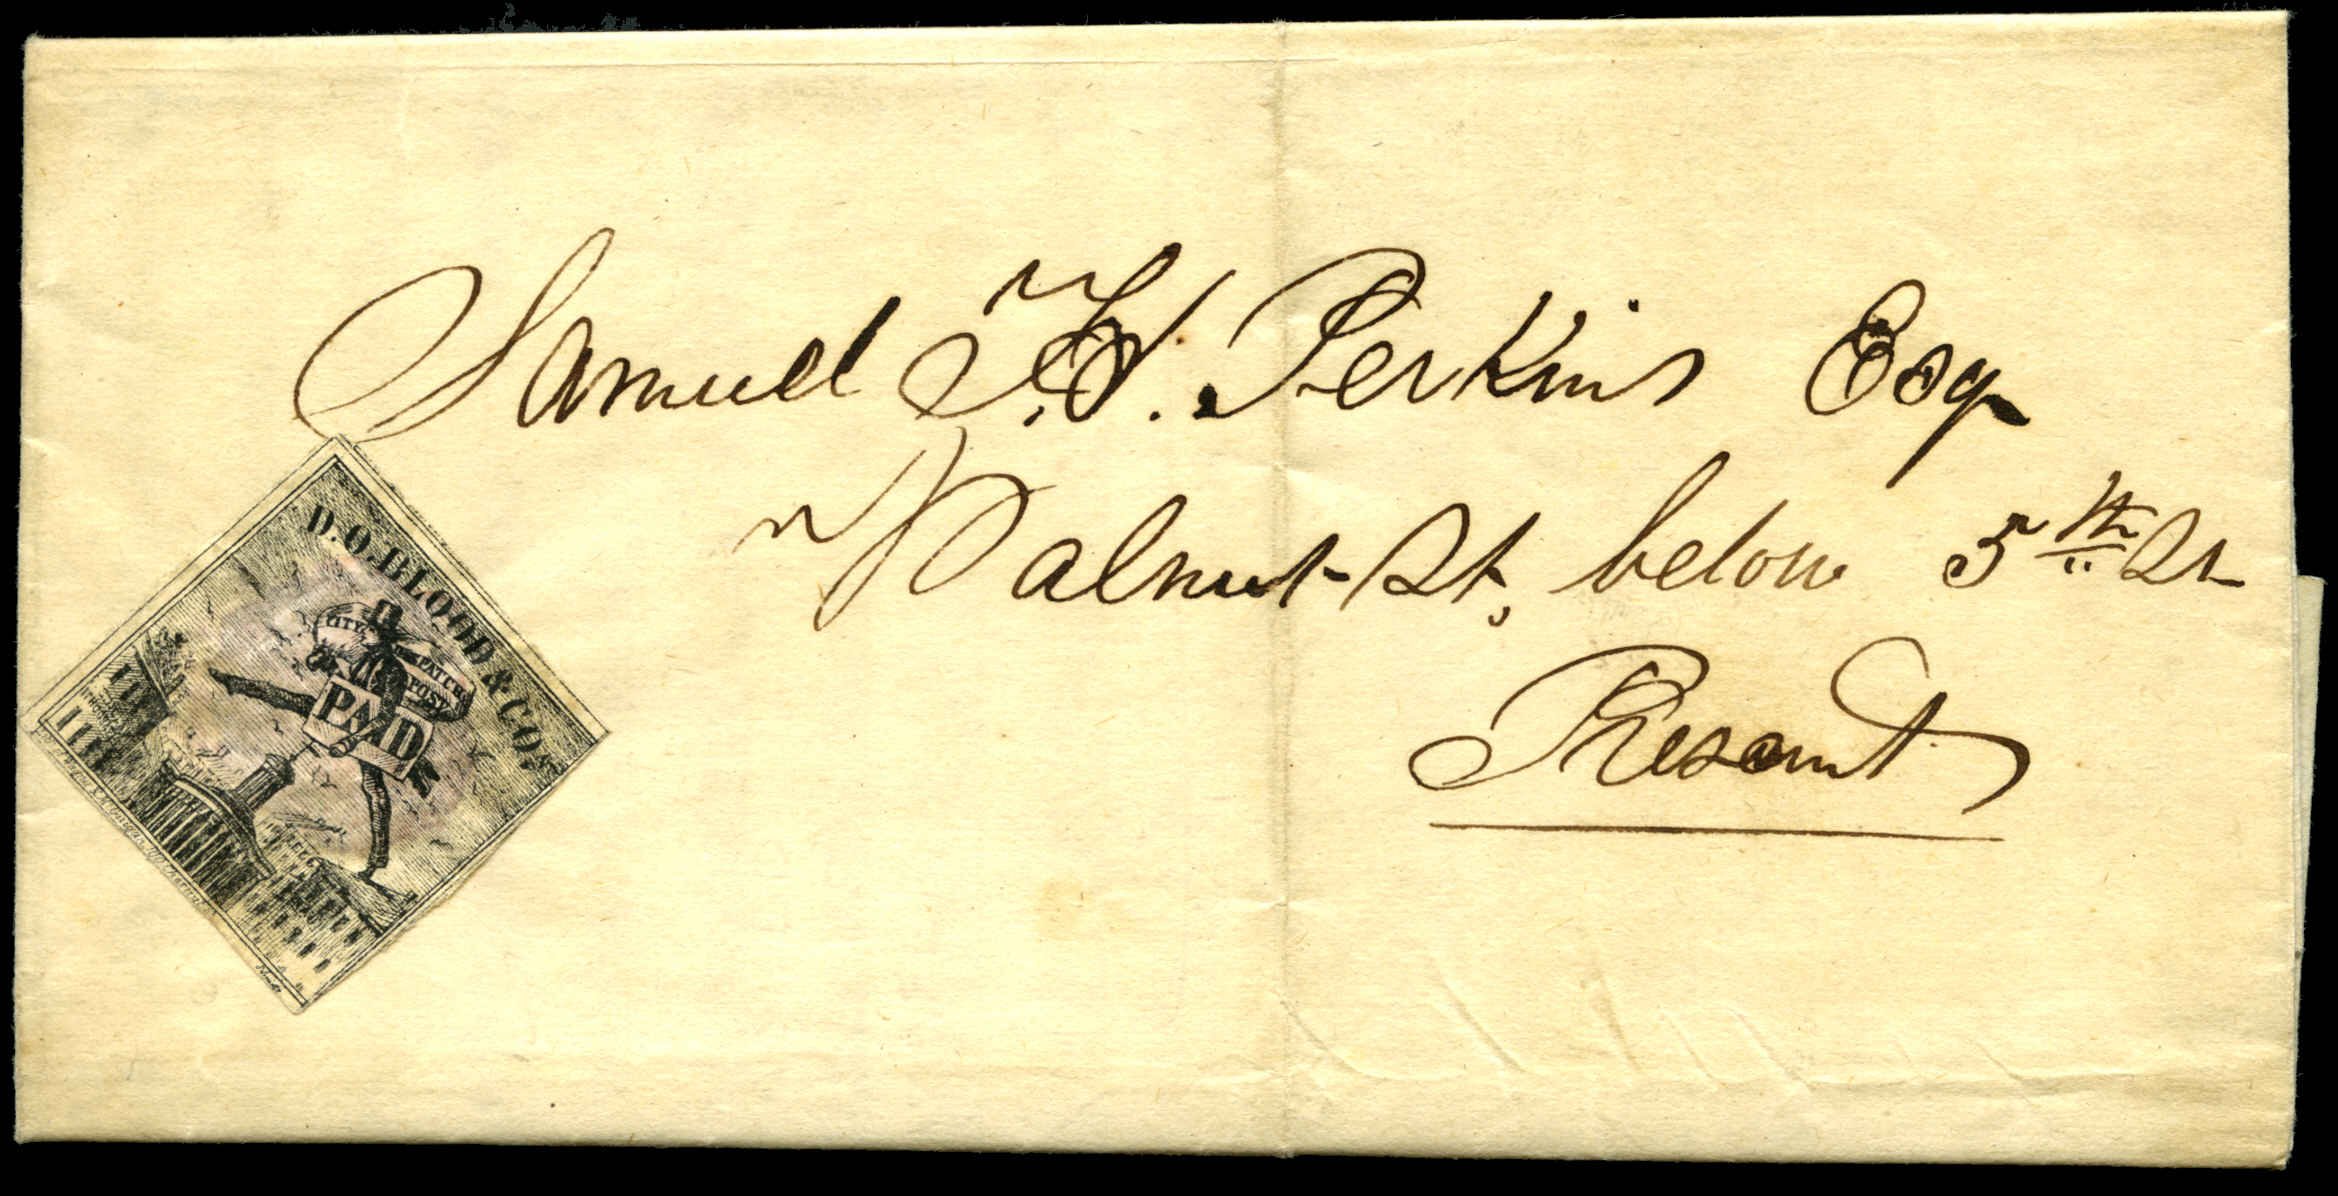 Samuel H. Perkins Esq
Walnut St, below 5th St
Present
D.O.BLOOD & CO'S
CITY
DESPATCH
POST
PAID